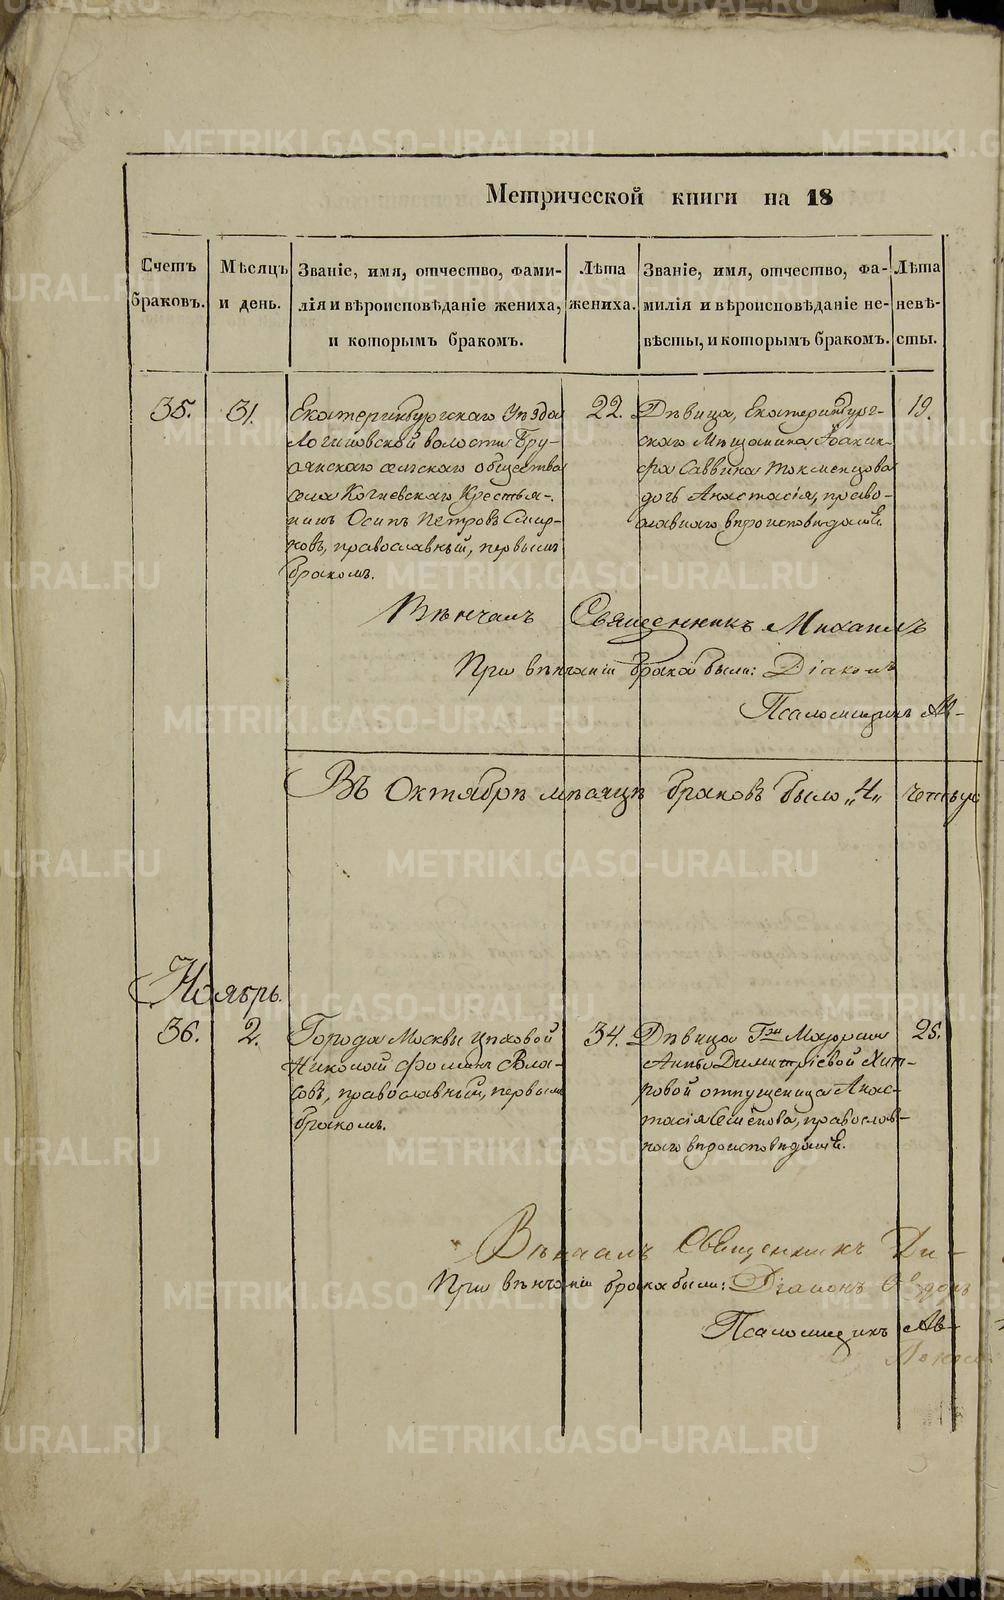 Метрической книги на 18
Счетъ браковъ.
Мѣсяцъ и день.
Званіе, имя, отчество, фами-
лія и вѣроисповѣданіе жениха,
и которымъ бракомъ.
Лѣта жениха.
Званіе, имя, отчество, фа-
милія и вѣроисповѣданіе не-
вѣсты, и которымъ бракомъ.
Лѣта невѣ-
сты.
35.
31.
Екатеринбургскаго Уѣзда
Логиновской волости Бру-
сянскаго сельскаго общества
села Кочневскаго Крестья-
нинъ Осипъ Петровъ Смир-
новъ, православный, первымъ
бракомъ.
22.
Дѣвица, Екатеринбург-
скаго Мѣщанина Іоакин-
фа Саввина Токменцова
дочь Анастасія, право-
славнаго вѣроисповѣданія.
19.
Вѣнчалъ Священникъ Михаилъ
При вѣнчаніи брака были: Діаконъ
Псаломщикъ Ав-
Въ Октябрѣ мѣсяцѣ браковъ было „4„ четыре
Ноябрь.
36.
2.
Города Москвы цѣховой
Николай Фоминъ Вла-
совъ, православный, первымъ
бракомъ.
34.
Дѣвица Гжи Маіорши
Анны Димитріевой Хит-
ровой отпущеница Анас-
тасія Семенова, православ-
наго вѣроисповѣданія.
25.
Вѣнчалъ Священникъ Ди-
При вѣнчаніи брака были: Діаконъ
Псаломщикъ Ав-
METRIKI.GASO-URAL.RU